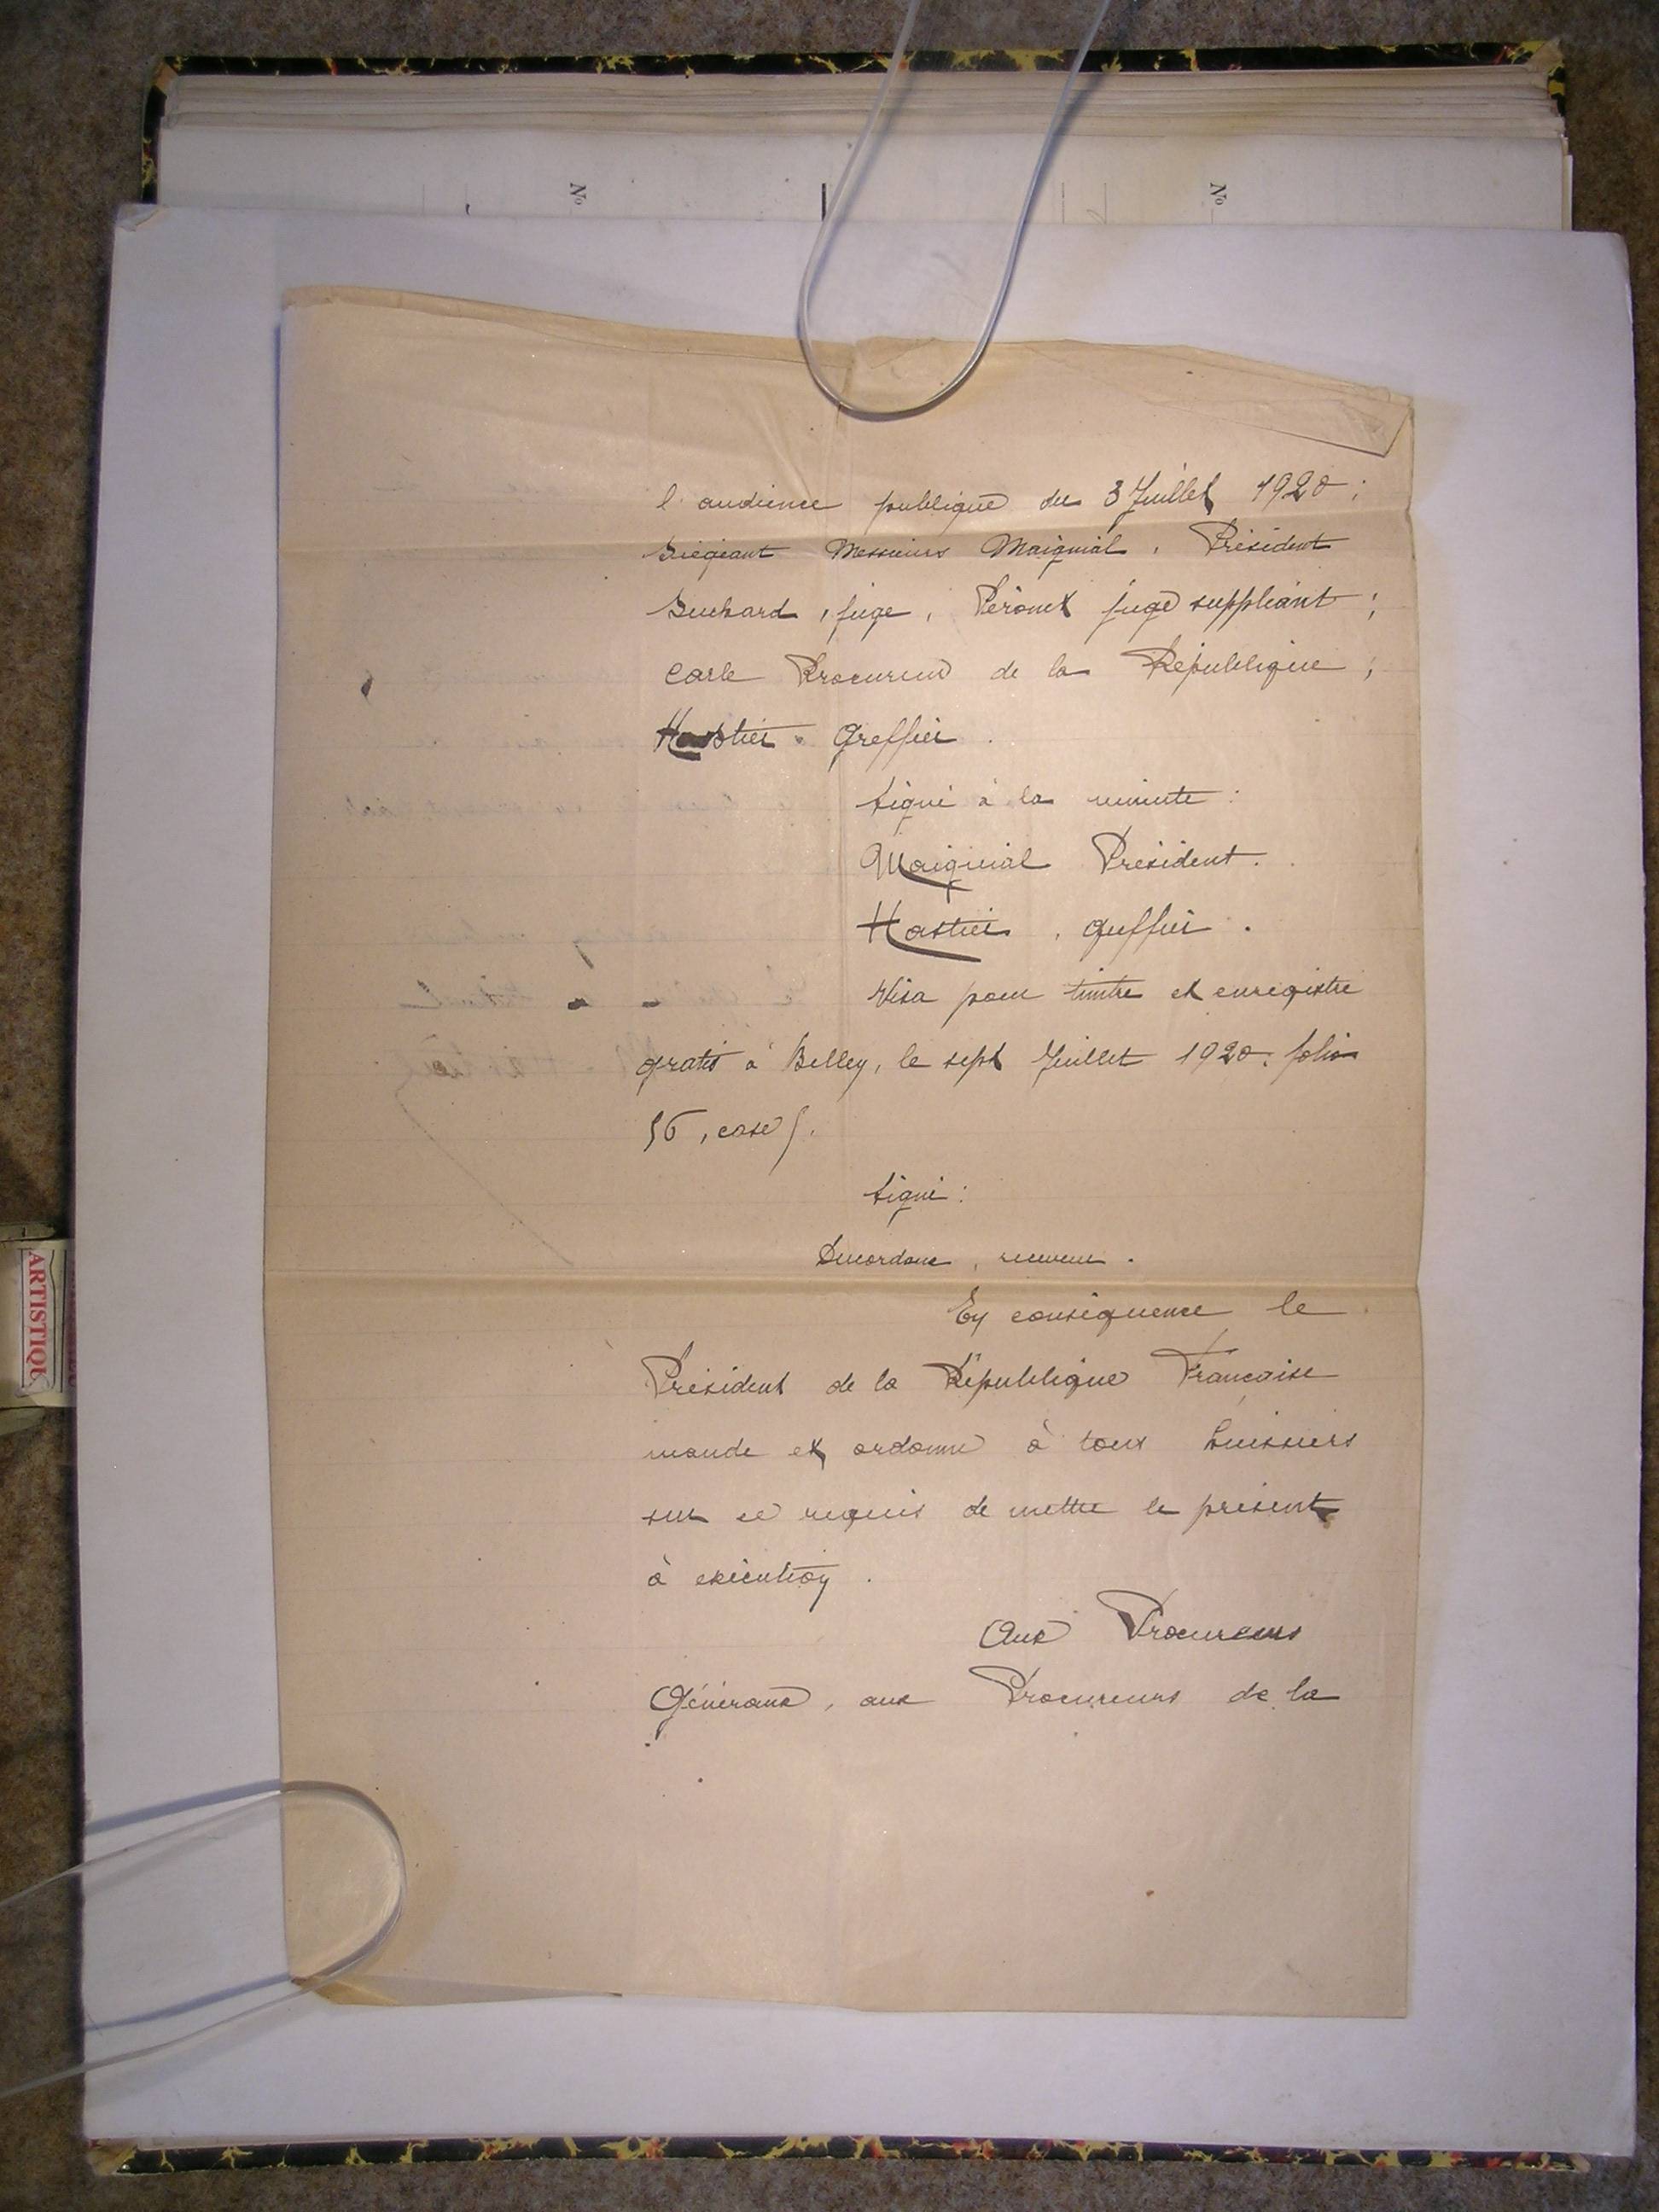 Nº Nº
l'audience publique du 3 Juillet 1920 ;
Siégeant Messieurs Maignial, Président
Suchard, juge, Péronet juge suppliant ;
Carle Procureur de la République ;
Hastier, Greffier.
Signé à la minute :
Maignial Président.
Hastier, greffier.
Visa pour timbre et enregistré
gratis à Belley, le sept Juillet 1920. folio
56, case 5.
Signé :
receveur.
En conséquence le
Président de la République Française
mande et ordonne à tous huissiers
sur ce requis de mettre le présent
à exécution.
Aux Procureurs
Généraux, aux Procureurs de la
ARTISTIQUE